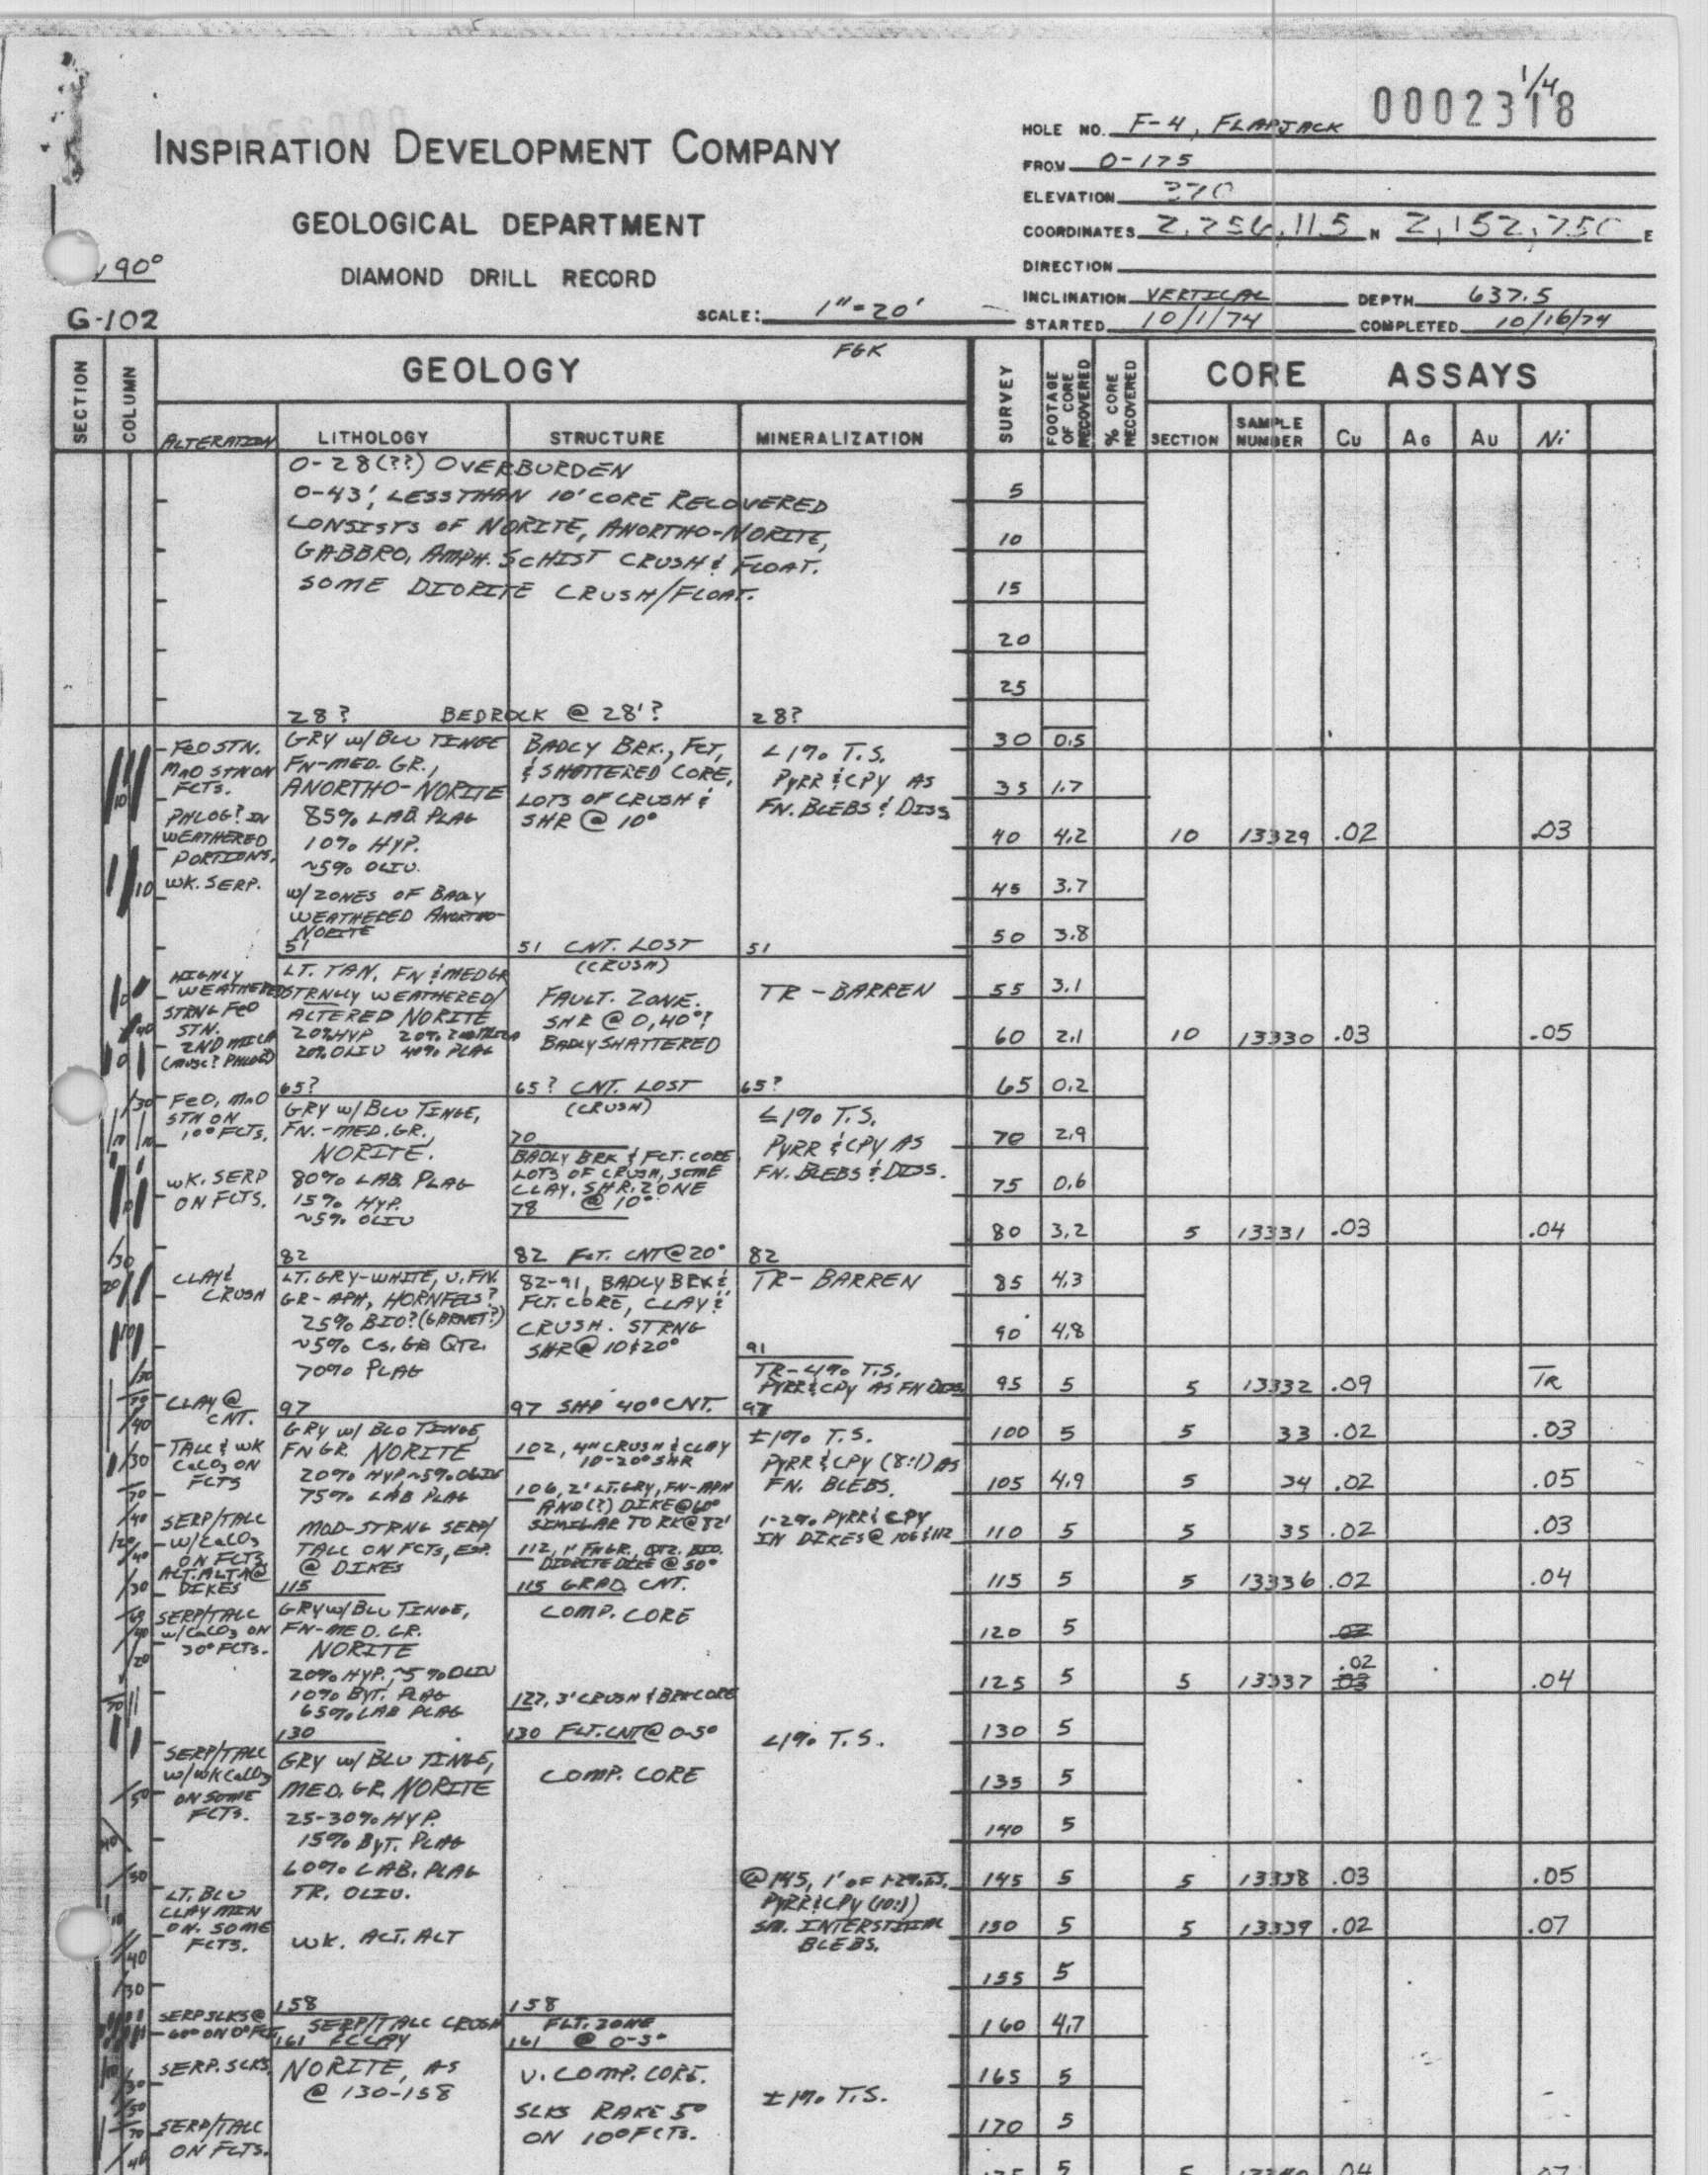 1/4
0002318
INSPIRATION DEVELOPMENT COMPANY
GEOLOGICAL DEPARTMENT
DIAMOND DRILL RECORD
90°
G-102
SCALE: 1"=20'
HOLE NO. F-4, FLAPJACK
FROM 0-175
ELEVATION 370
COORDINATES 2,256,115 N 2,152,750 E
DIRECTION
INCLINATION VERTICAL DEPTH 637.5
STARTED 10/1/74 COMPLETED 10/16/74
SECTION
COLUMN
GEOLOGY
FGK
SURVEY
FOOTAGE OF CORE RECOVERED
% CORE RECOVERED
CORE ASSAYS
ALTERATION LITHOLOGY STRUCTURE MINERALIZATION
SECTION SAMPLE NUMBER Cu Ag Au Ni
0-28(??) OVERBURDEN
0-43', LESS THAN 10' CORE RECOVERED
CONSISTS OF NORITE, ANORTHO-NORITE,
GABBRO, AMPH. SCHIST CRUSH & FLOAT.
SOME DIORITE CRUSH/FLOAT.
28? BEDROCK @ 28'? 28?
FeO STN.
MnO STN ON
FCTS.
PHLOG? IN
WEATHERED
PORTIONS.
WK. SERP.
GRY w/ BLU TINGE
FN-MED. GR.,
ANORTHO-NORITE
85% LAB. PLAG
10% HYP.
~5% OLIV.
w/ ZONES OF BADLY
WEATHERED ANORTHO-
NORITE
BADLY BRK., FCT,
& SHATTERED CORE,
LOTS OF CRUSH &
SHR @ 10°
<1% T.S.
PYRR & CPY AS
FN. BLEBS & DISS
51 51 CNT. LOST 51
(CRUSH)
HIGHLY
WEATHERED
STRNG FeO
STN.
2ND MICA
(MUSC? PHLOG?)
LT. TAN, FN & MED GR
STRNGLY WEATHERED/
ALTERED NORITE
20% HYP 20% 2ND MICA
20% OLIV 40% PLAG
FAULT. ZONE.
SHR @ 0, 40°?
BADLY SHATTERED
TR - BARREN
65? 65? CNT. LOST 65?
(CRUSH)
FeO, MnO
STN ON
10° FCTS.
WK. SERP
ON FCTS.
GRY w/ BLU TINGE,
FN.-MED. GR.,
NORITE.
80% LAB. PLAG
15% HYP.
~5% OLIV
70
BADLY BRK & FCT. CORE
LOTS OF CRUSH, SOME
CLAY. SHR. ZONE
78 @ 10°
≤1% T.S.
PYRR & CPY AS
FN. BLEBS & DISS.
82 82 FCT. CNT @ 20° 82
CLAY &
CRUSH
LT. GRY-WHITE, V. FN.
GR-APH, HORNFELS?
25% BIO? (GARNET?)
~5% CS. GR QTZ.
70% PLAG
82-91, BADLY BRK &
FCT. CORE, CLAY &
CRUSH. STRNG
SHR @ 10 & 20°
TR- BARREN
91
TR-<1% T.S.
PYRR & CPY AS FN DISS
CLAY @
CNT.
97 97 SHP 40° CNT. 97
TALC & WK
CaCO3 ON
FCTS
SERP/TALC
w/CaCO3
ON FCTS
ALT. ALTA @
DIKES
GRY w/ BLU TINGE,
FN GR. NORITE
20% HYP ~5% OLIV
75% LAB PLAG
MOD-STRNG SERP/
TALC ON FCTS, ESP.
@ DIKES
102, 4" CRUSH & CLAY
10-20° SHR
106, 2' LT. GRY, FN-APH
AND(?) DIKE @ 60°
SIMILAR TO RK @ 82'
112, 1" FN GR., QTZ. BIO.
DIORITE DIKE @ 50°
±1% T.S.
PYRR & CPY (8:1) AS
FN. BLEBS.
1-2% PYRR & CPY
IN DIKES @ 106 & 112
115 115 GRAD. CNT.
SERP/TALC
w/CaCO3 ON
30° FCTS.
GRY w/ BLU TINGE,
FN-MED. GR.
NORITE
20% HYP., ~5% OLIV
10% BYT. PLAG
65% LAB PLAG
COMP. CORE
127, 3' CRUSH & BRK CORE
130 130 FLT. CNT @ 0-5°
<1% T.S.
SERP/TALC
w/ WK CaCO3
ON SOME
FCTS.
GRY w/ BLU TINGE,
MED. GR. NORITE
25-30% HYP.
15% BYT. PLAG
60% LAB. PLAG
TR. OLIV.
WK. ALT. ALT
COMP. CORE
@ 145, 1' OF 1-2% T.S.
PYRR & CPY (10:1)
SM. INTERSTITIAL
BLEBS.
LT. BLU
CLAY MIN
ON. SOME
FCTS.
158 158
SERP SLKS @
60° ON 0° FCT
SERP/TALC CRUSH
161 & CLAY
FLT. ZONE
161 @ 0-5°
SERP. SLKS.
NORITE, AS
@ 130-158
V. COMP. CORE.
SLKS RAKE 5°
ON 10° FCTS.
±1% T.S.
SERP/TALC
ON FCTS.
5
10
15
20
25
30 0.5
35 1.7
40 4.2 10 13329 .02 .03
45 3.7
50 3.8
55 3.1
60 2.1 10 13330 .03 .05
65 0.2
70 2.9
75 0.6
80 3.2 5 13331 .03 .04
85 4.3
90 4.8
95 5 5 13332 .09 TR
100 5 5 33 .02 .03
105 4.9 5 34 .02 .05
110 5 5 35 .02 .03
115 5 5 13336 .02 .04
120 5 .02
125 5 5 13337 .02 .03 .04
130 5
135 5
140 5
145 5 5 13338 .03 .05
150 5 5 13339 .02 .07
155 5
160 4.7
165 5
170 5
175 5 5 13340 .04 .07